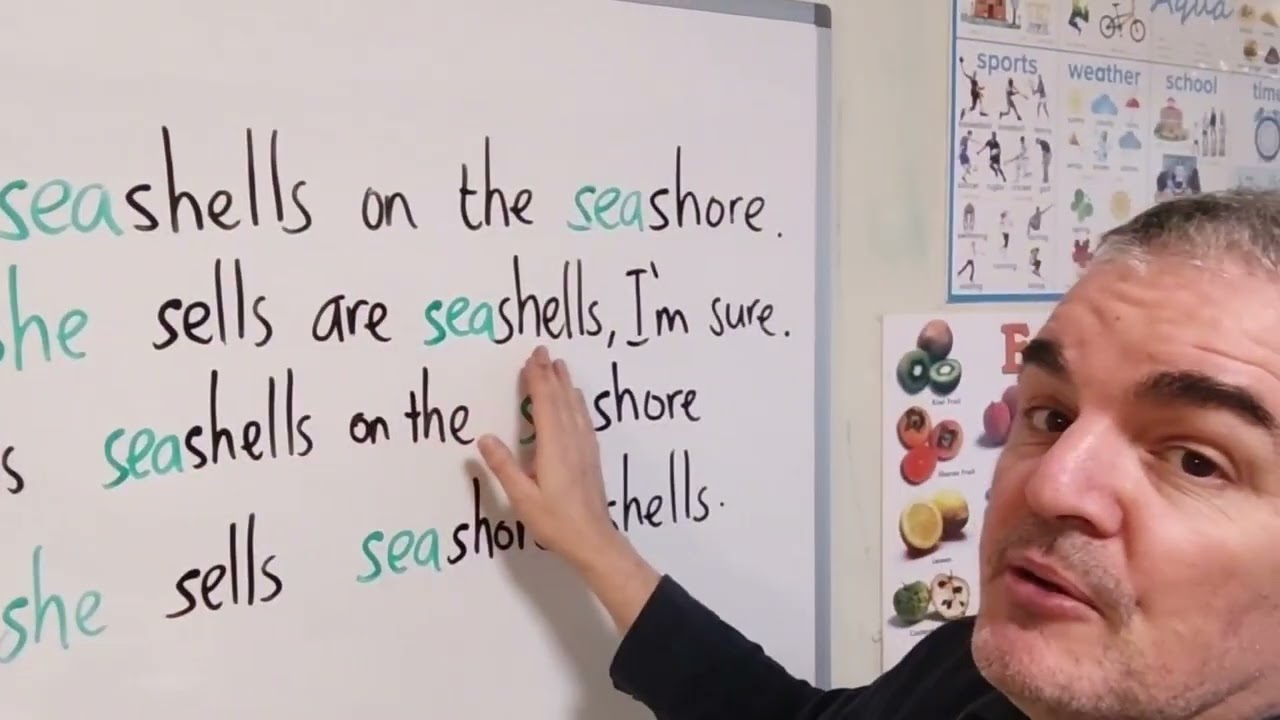 seashells on the seashore.
he sells are seashells, I'm sure.
s seashells on the s shore
she sells seashor hells.
Aqua
sports weather school time
Kiwi Fruit
Sharon Fruit
Lemon